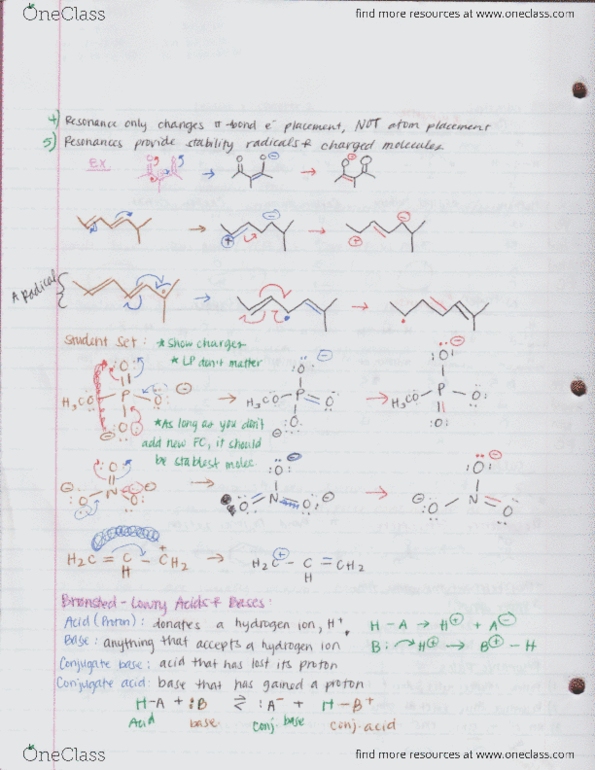 OneClass
find more resources at www.oneclass.com
4) Resonance only changes π-bond e⁻ placement, NOT atom placement
5) Resonances provide stability radicals & charged molecules
ex.
A Radical
Student Set: *Show charges
*LP don't matter
H₃CO P O
*As long as you don't
add new FC, it should
be stablest molec.
H₂C = C - CH₂
H
H₂C - C = CH₂
H
Bronsted-Lowry Acids & Bases:
Acid (Proton): donates a hydrogen ion, H⁺.
H-A → H⊕ + A⊖
Base: anything that accepts a hydrogen ion
B: H⊕ → B⊕-H
Conjugate base: acid that has lost its proton
Conjugate acid: base that has gained a proton
H-A + :B ⇌ :A⁻ + H-B⁺
Acid base conj. base conj. acid
OneClass
find more resources at www.oneclass.com